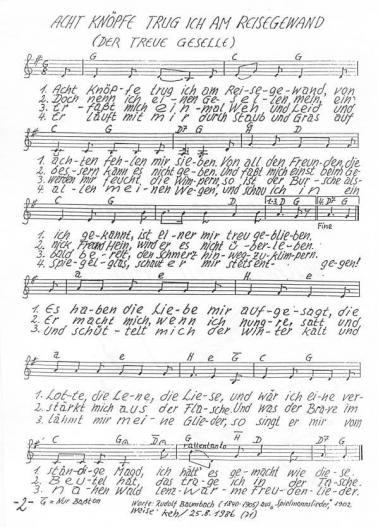 ACHT KNÖPFE TRUG ICH AM REISEGEWAND
(DER TREUE GESELLE)
C G
1. Acht Knöp-fe trug ich am Rei-se-ge-wand, von
2. Doch nenn ich ei-nen Ge-sel-len mein, ein
3. er faßt mich ein-mal Weh und Leid und
4. er läuft mit mir durch Staub und Gras auf
C G D7 G
1. ach-ten feh-len mir sie-ben. Von all den Freun-den, die
2. bes-sern kann es nicht ge-ben. Und faßt mich einst beim Ge-
3. werden mir feucht die Wim-pern, so ist der Bur-sche als-
4. al-len mei-nen We-gen, und schau ich in ein
C G D G D7 G
1. ich ge-kannt, ist ei-ner mir treu ge-blie-ben.
2. nick Freund Hein, wird er es nicht ü-ber-le-ben.
3. bald be-reit, den Schmerz hin-weg-zu-klim-pern.
4. spie-gel-glas, schaut er mir stets ent- ge-gen!
1.-3.
4.
Fine
e a H e
1. Es ha-ben die Lie-be mir auf-ge-sagt, die
2. Er macht mich, wenn ich hung-re, satt und
3. und schüt-telt mich der win-ter kalt und
a e H e C G
1. Lot-te, die Le-ne, die Lie-se, und wär ich ei-ne ver-
2. stärkt mich aus der Fla-sche. Und was der Bra-ve im
3. lähmt mir mei-ne Glie-der, so singt er mir vom
C Gm Dm G rallentando H D D7
1. stän-di-ge Magd, ich hätt' es ge-macht wie die-se.
2. Beu-tel hat, das tra-ge ich in der Ta-sche.
3. na-hen Wald lenz-war-me freu-den-lie-der.
-2-
= Nur Baßton
Worte: Rudolf Baumbach (1840-1905) aus „Spielmannslieder", 1882
Weise: keh/ 25.8.1986